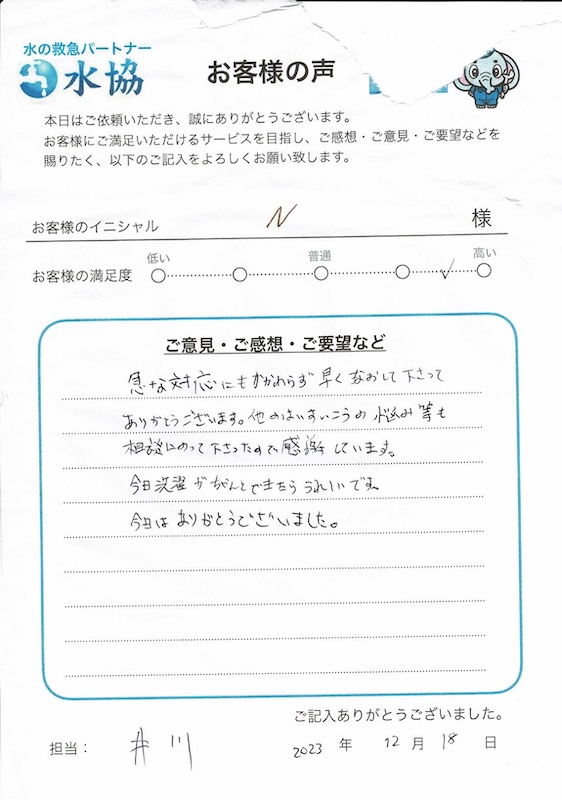 水の救急パートナー
水協
お客様の声
本日はご依頼いただき、誠にありがとうございます。
お客様にご満足いただけるサービスを目指し、ご感想・ご意見・ご要望などを
賜りたく、以下のご記入をよろしくお願い致します。
お客様のイニシャル N 様
低い 普通 高い
お客様の満足度
ご意見・ご感想・ご要望など
急な対応にもかかわらず早くなおして下さって
ありがとうございます。他のはいすいこうの悩み等も
相談にのって下さったので感謝しています。
今日洗濯ががんとできたらうれしいです
今日はありがとうございました。
ご記入ありがとうございました。
担当: 井川
2023 年 12 月 18 日